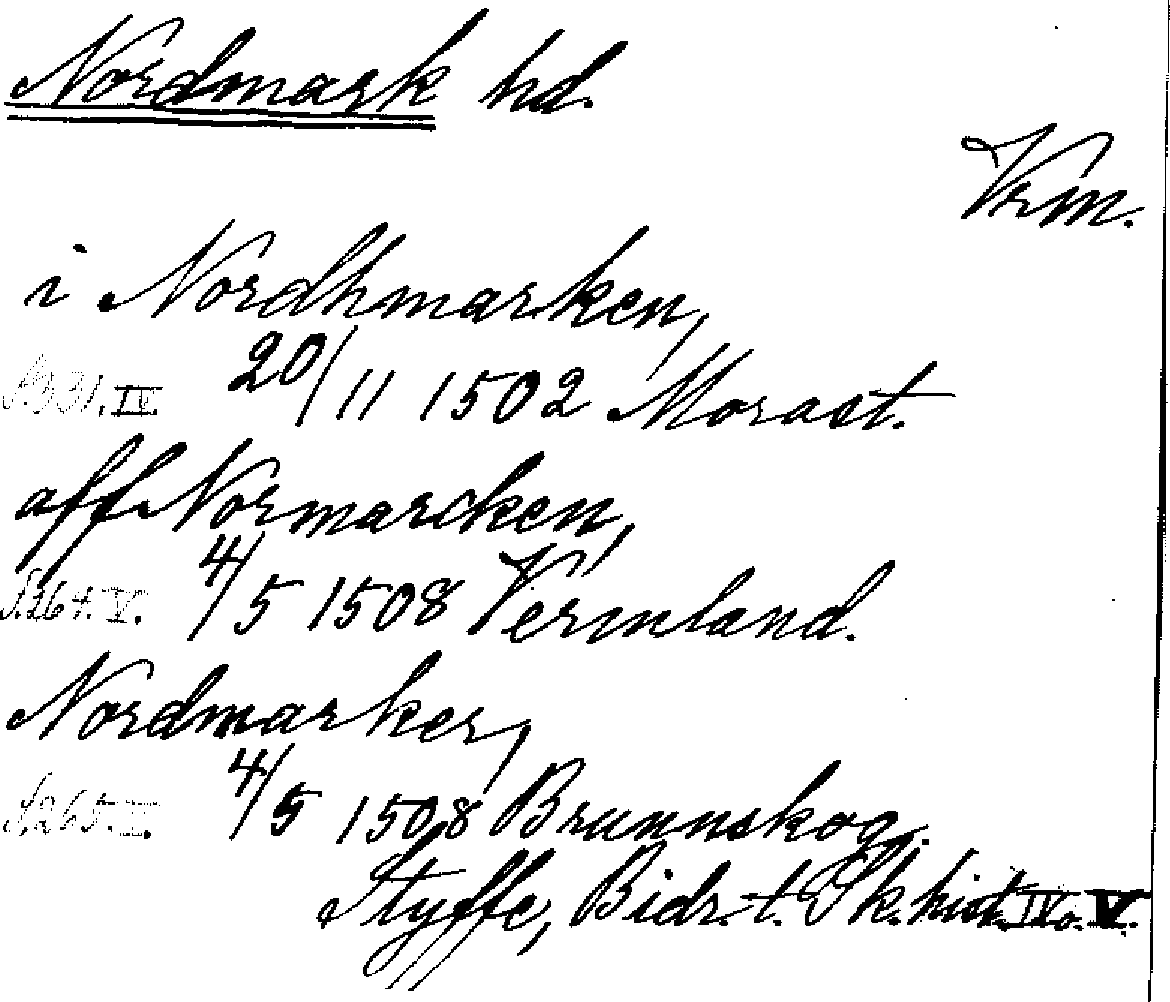 Nordmark hd.
Vrm.
i Nordhmarken,
20/11 1502 Morast.
IV.
aff Normarcken,
S. 264. V. 4/5 1508 Vermland.
Nordmarker,
S. 265. 4/5 1508 Brunnskog.
Styffe, Bidr. t. Sk. hist. IV o. V.